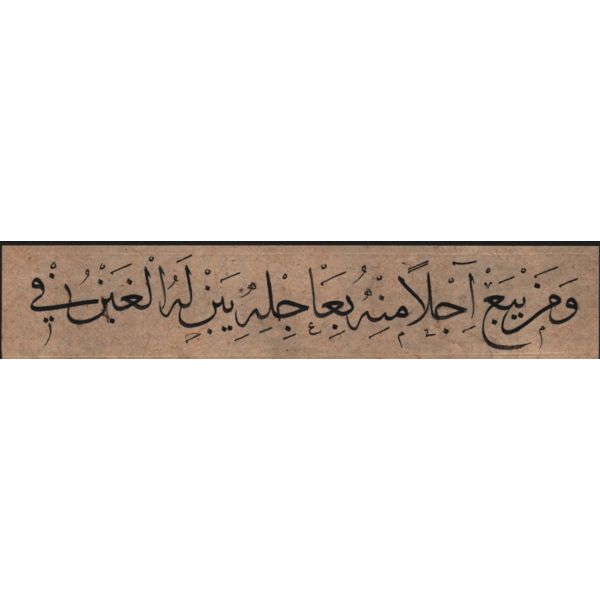 وَمَنْ يَبِعْ آجِلًا مِنْهُ بِعَاجِلِهِ يَبِنْ لَهُ الْغَبْنُ فِي